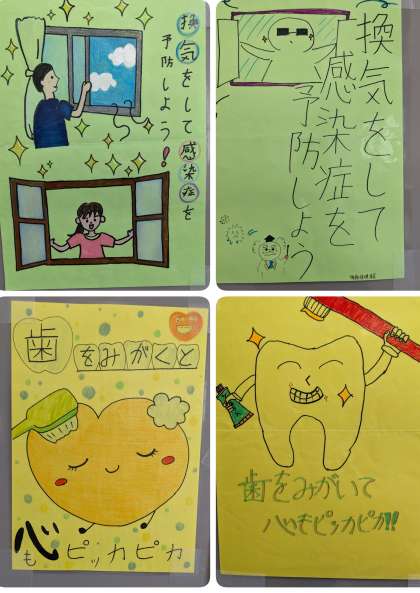 換気をして感染症を
予防しよう!
換気をして
感染症を
予防しよう
歯をみがくと
心もピッカピカ
歯をみがいて
心もピッカピカ!!